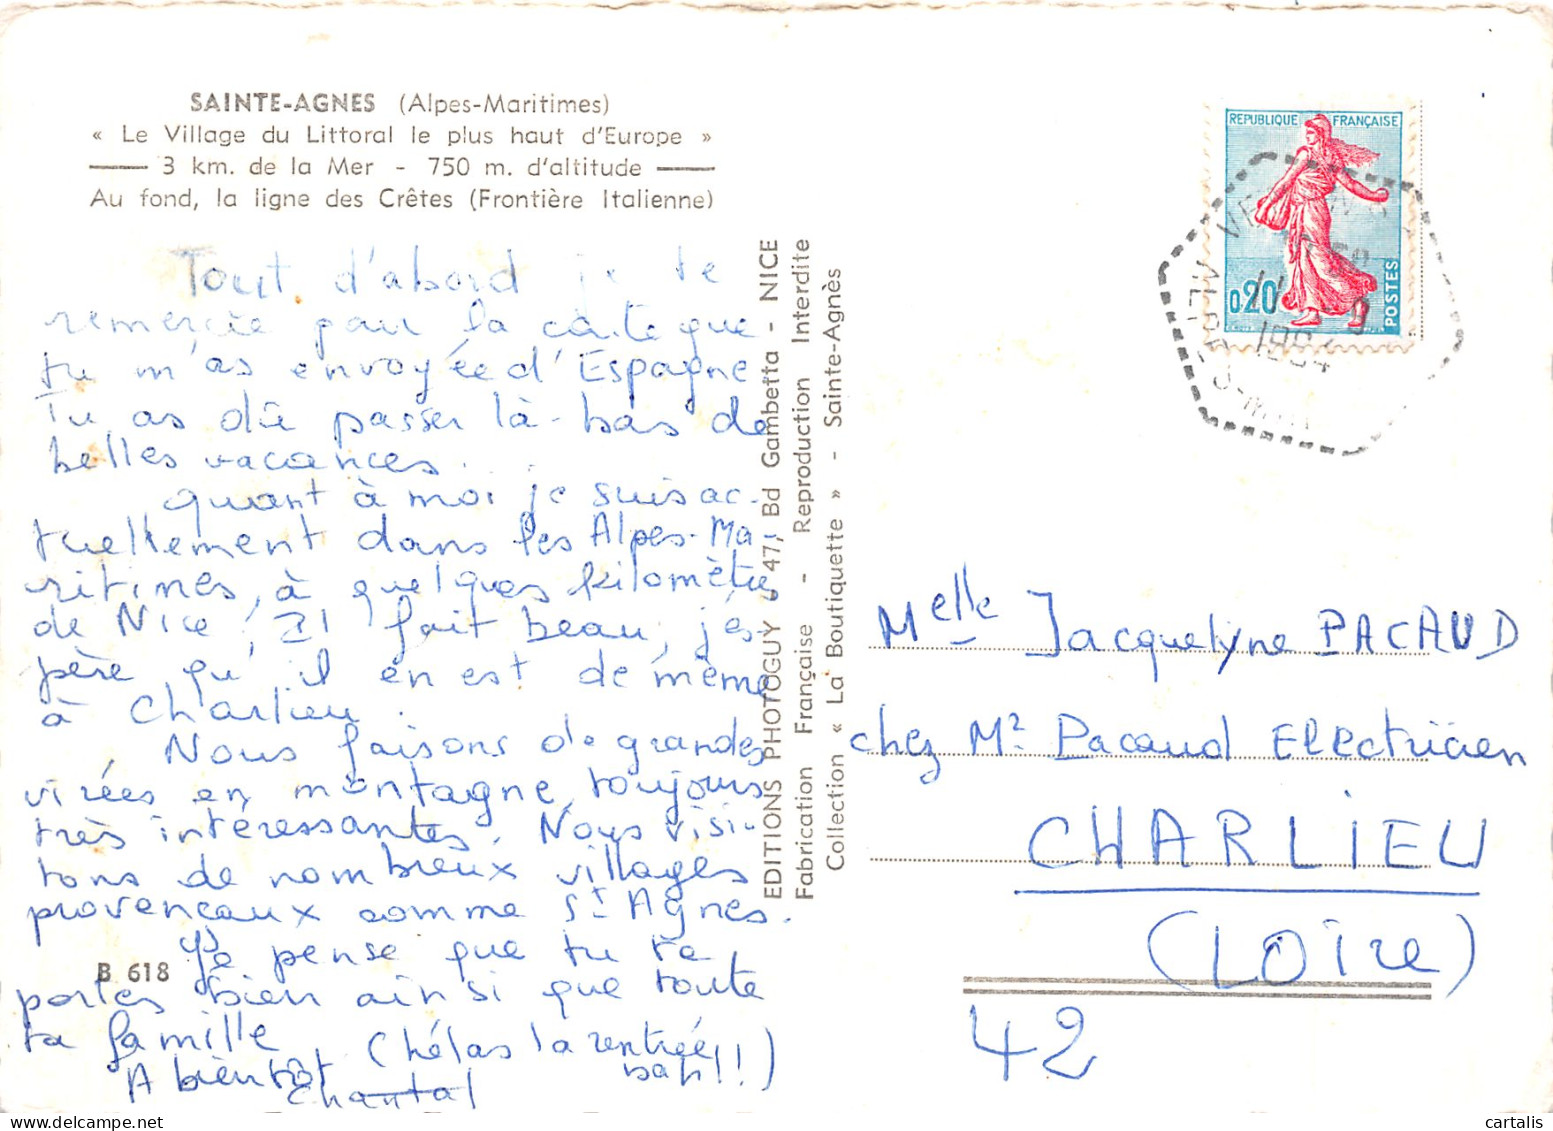 SAINTE-AGNES (Alpes-Maritimes)
« Le Village du Littoral le plus haut d'Europe »
3 km. de la Mer - 750 m. d'altitude
Au fond, la ligne des Crêtes (Frontière Italienne)
Tout d'abord je te
remercie pour la carte que
tu m'as envoyée d'Espagne
Tu as dû passer là-bas de
belles vacances...
quant à moi je suis ac-
tuellement dans les Alpes-Ma-
ritimes, à quelques kilomètres
de Nice, Il fait beau, j'es-
père qu'il en est de même
à Charlieu.
Nous faisons de grandes
virées en montagne, toujours
très intéressantes. Nous visi-
tons de nombreux villages
provencaux comme St Agnes.
Je pense que tu te
portes bien ainsi que toute
ta famille
A bientôt (hélas la rentrée
bah!!)
Chantal
B 618
EDITIONS PHOTOGUY - 47, Bd Gambetta - NICE
Fabrication Française - Reproduction Interdite
Collection « La Boutiquette » - Sainte-Agnès
REPUBLIQUE FRANÇAISE
0,20
POSTES
1964
Melle Jacquelyne PACAUD
chez Mr Pacaud Electricien
CHARLIEU
(LOIre)
42
cartalis
www.delcampe.net